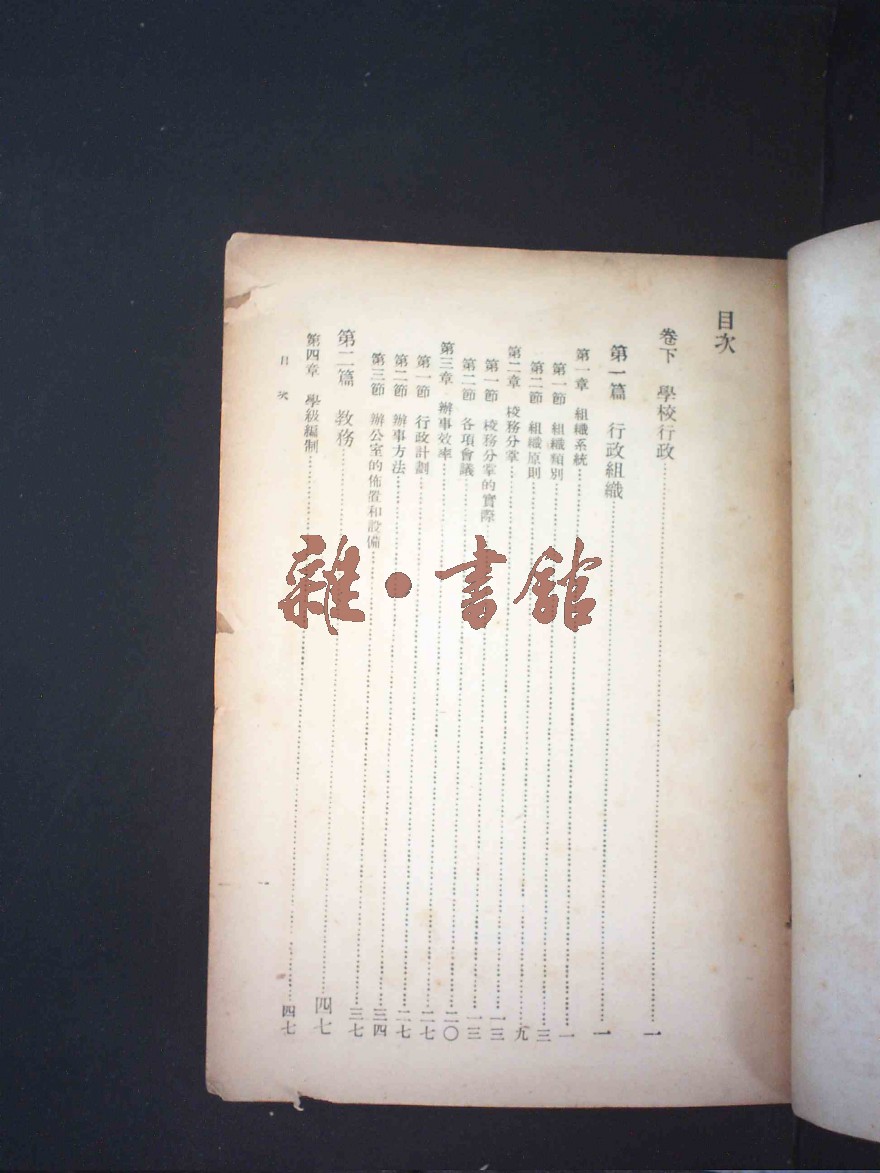 目次
卷下 學校行政……一
第一篇 行政組織……一
第一章 組織系統……一
第一節 組織類別……三
第二節 組織原則……九
第二章 校務分掌……一三
第一節 校務分掌的實際……一三
第二節 各項會議……二〇
第三章 辦事效率……二七
第一節 行政計劃……二七
第二節 辦事方法……三四
第三節 辦公室的佈置和設備……三七
第二篇 教務……四七
第四章 學級編制……四七
目次 一
雜•書館